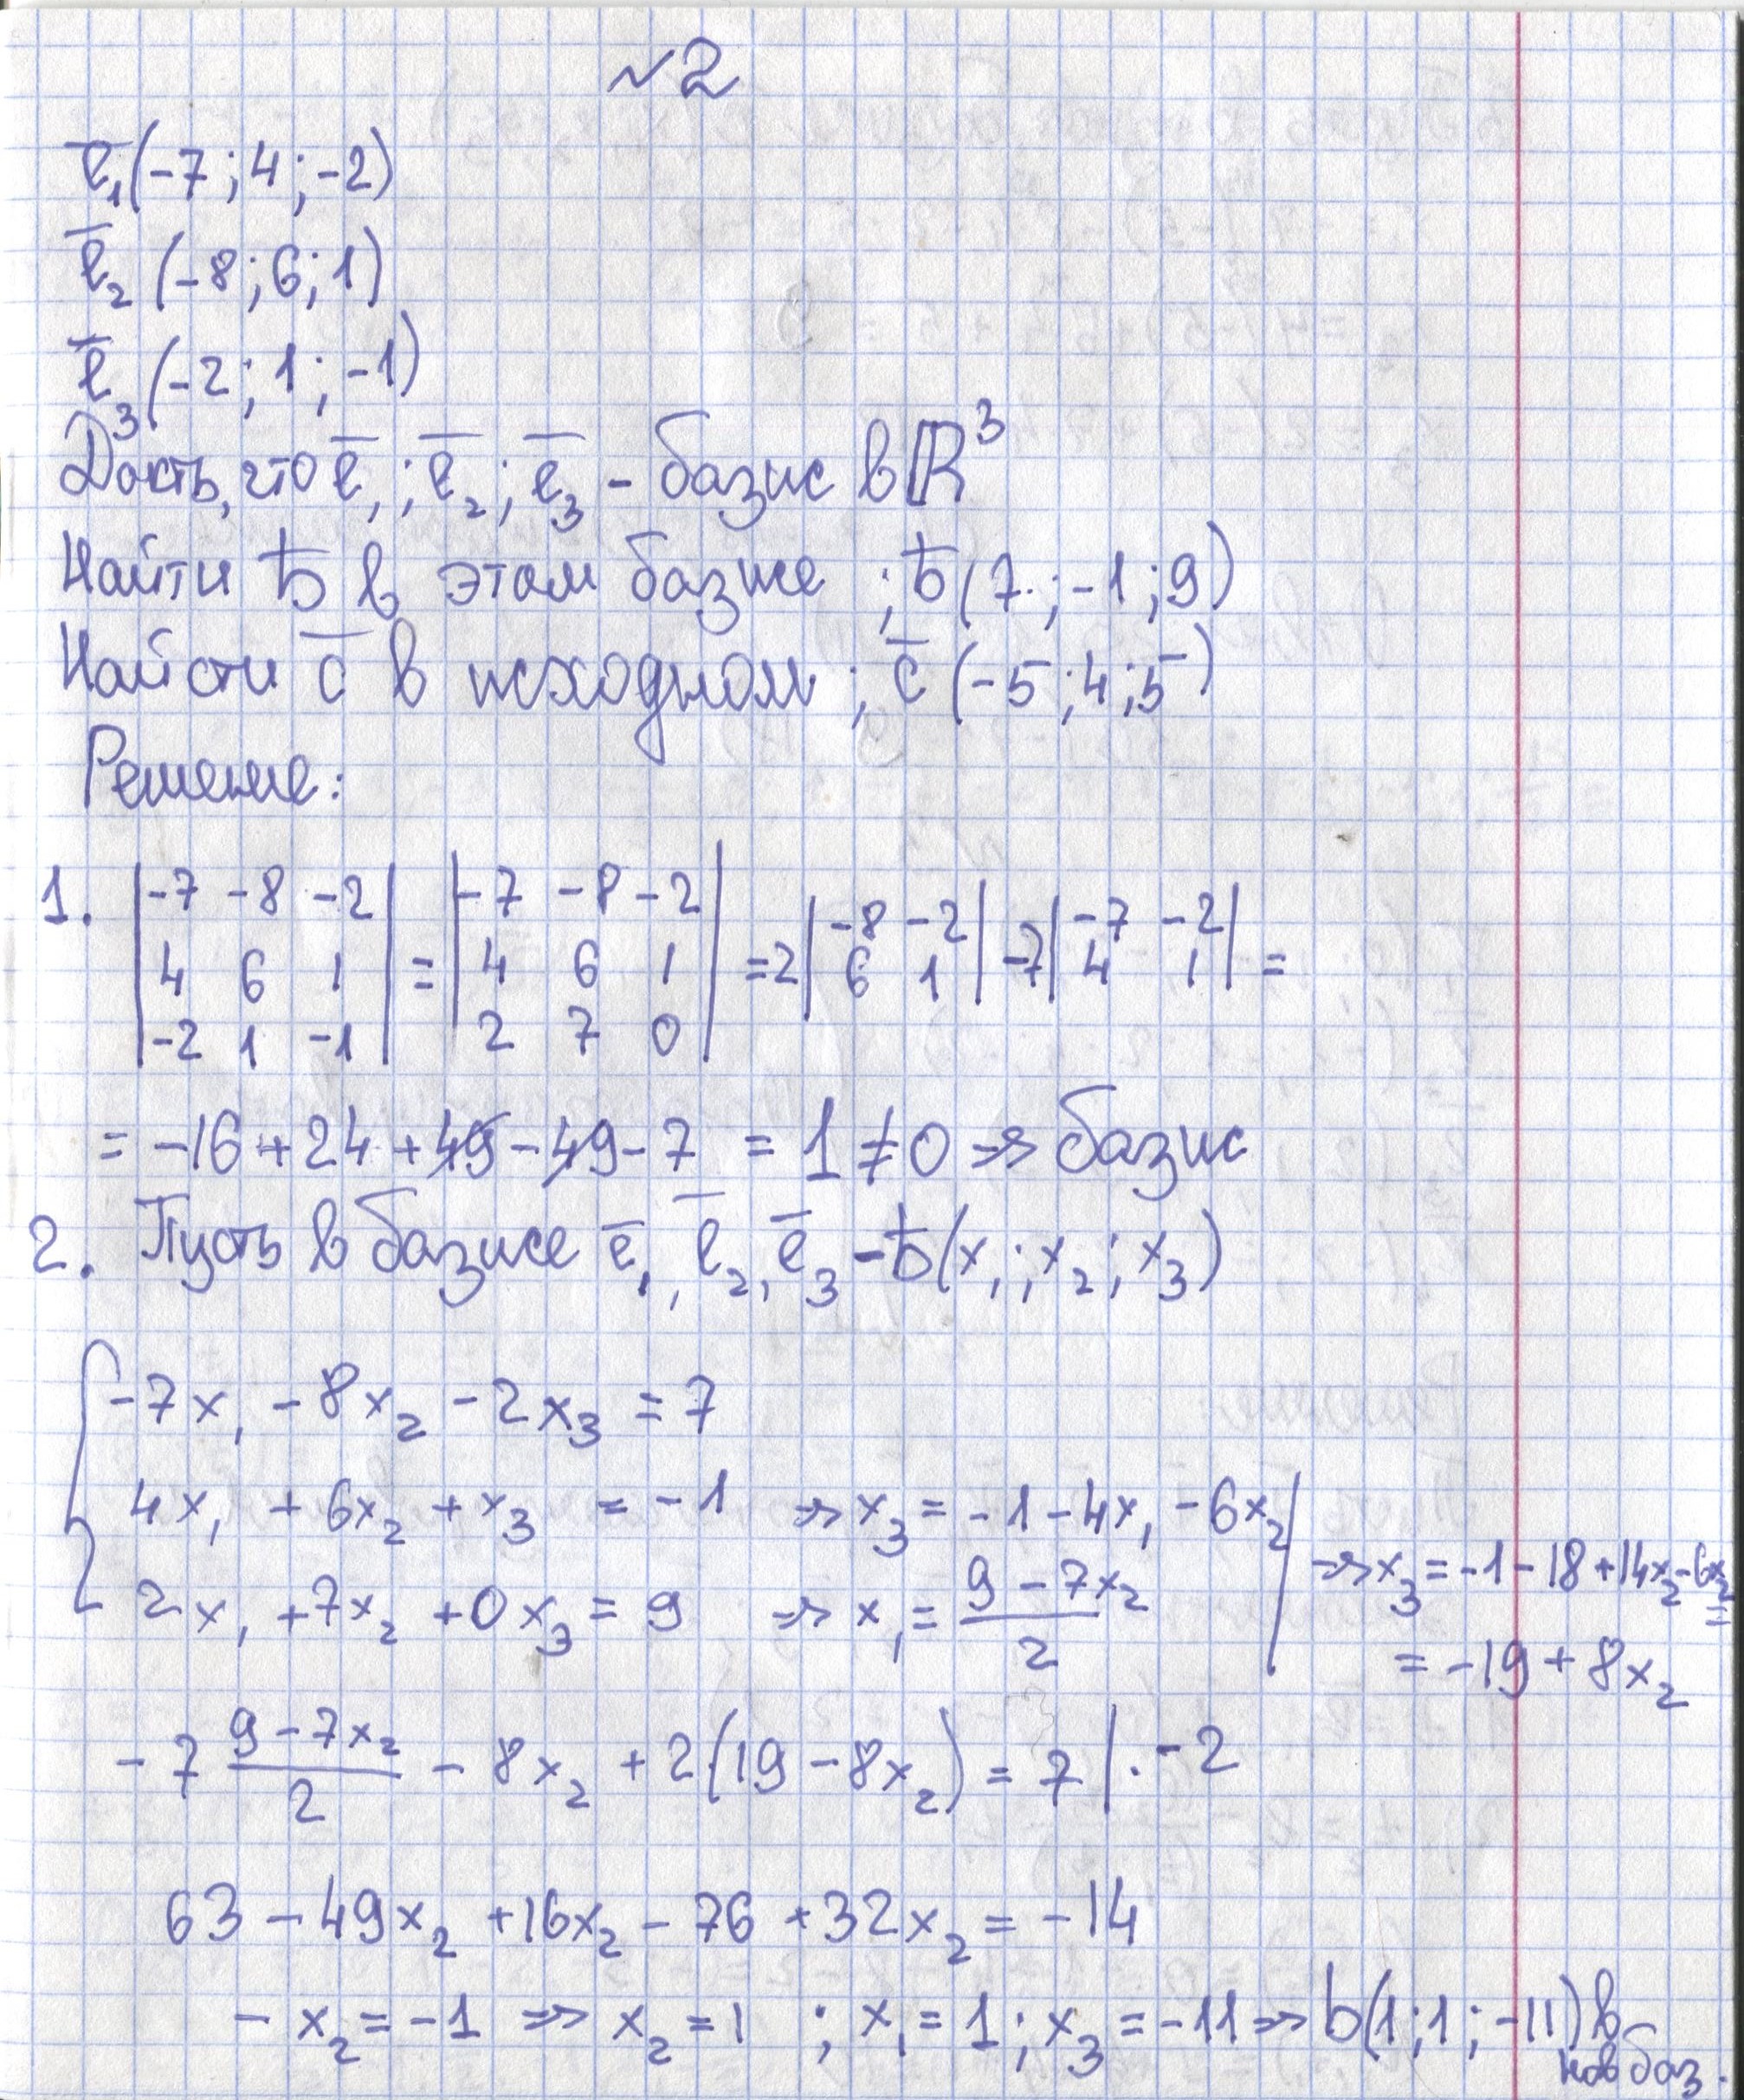 №2
e̅₁(-7; 4; -2)
e̅₂(-8; 6; 1)
e̅₃(-2; 1; -1)
Док-ть, что e̅₁; e̅₂; e̅₃ - базис в ℝ³
Найти b̅ в этом базисе ; b̅(7; -1; 9)
Найти c̅ в исходном ; c̅(-5; 4; 5)
Решение:
1. |-7 -8 -2| = |-7 -8 -2| = 2|-8 -2| -7|-7 -2| =
|4 6 1| |4 6 1| |6 1| |4 1|
|-2 1 -1| |2 7 0|
= -16 + 24 + 49 - 49 - 7 = 1 ≠ 0 => базис
2. Пусть в базисе e̅₁, e̅₂, e̅₃ - b̅(x₁; x₂; x₃)
-7x₁ - 8x₂ - 2x₃ = 7
4x₁ + 6x₂ + x₃ = -1 => x₃ = -1 - 4x₁ - 6x₂ | => x₃ = -1 - 18 + 14x₂ - 6x₂ =
2x₁ + 7x₂ + 0x₃ = 9 => x₁ = (9 - 7x₂)/2 | = -19 + 8x₂
-7 (9 - 7x₂)/2 - 8x₂ + 2(19 - 8x₂) = 7 | · -2
63 - 49x₂ + 16x₂ - 76 + 32x₂ = -14
- x₂ = -1 => x₂ = 1 ; x₁ = 1; x₃ = -11 => b(1; 1; -11) в
нов баз.